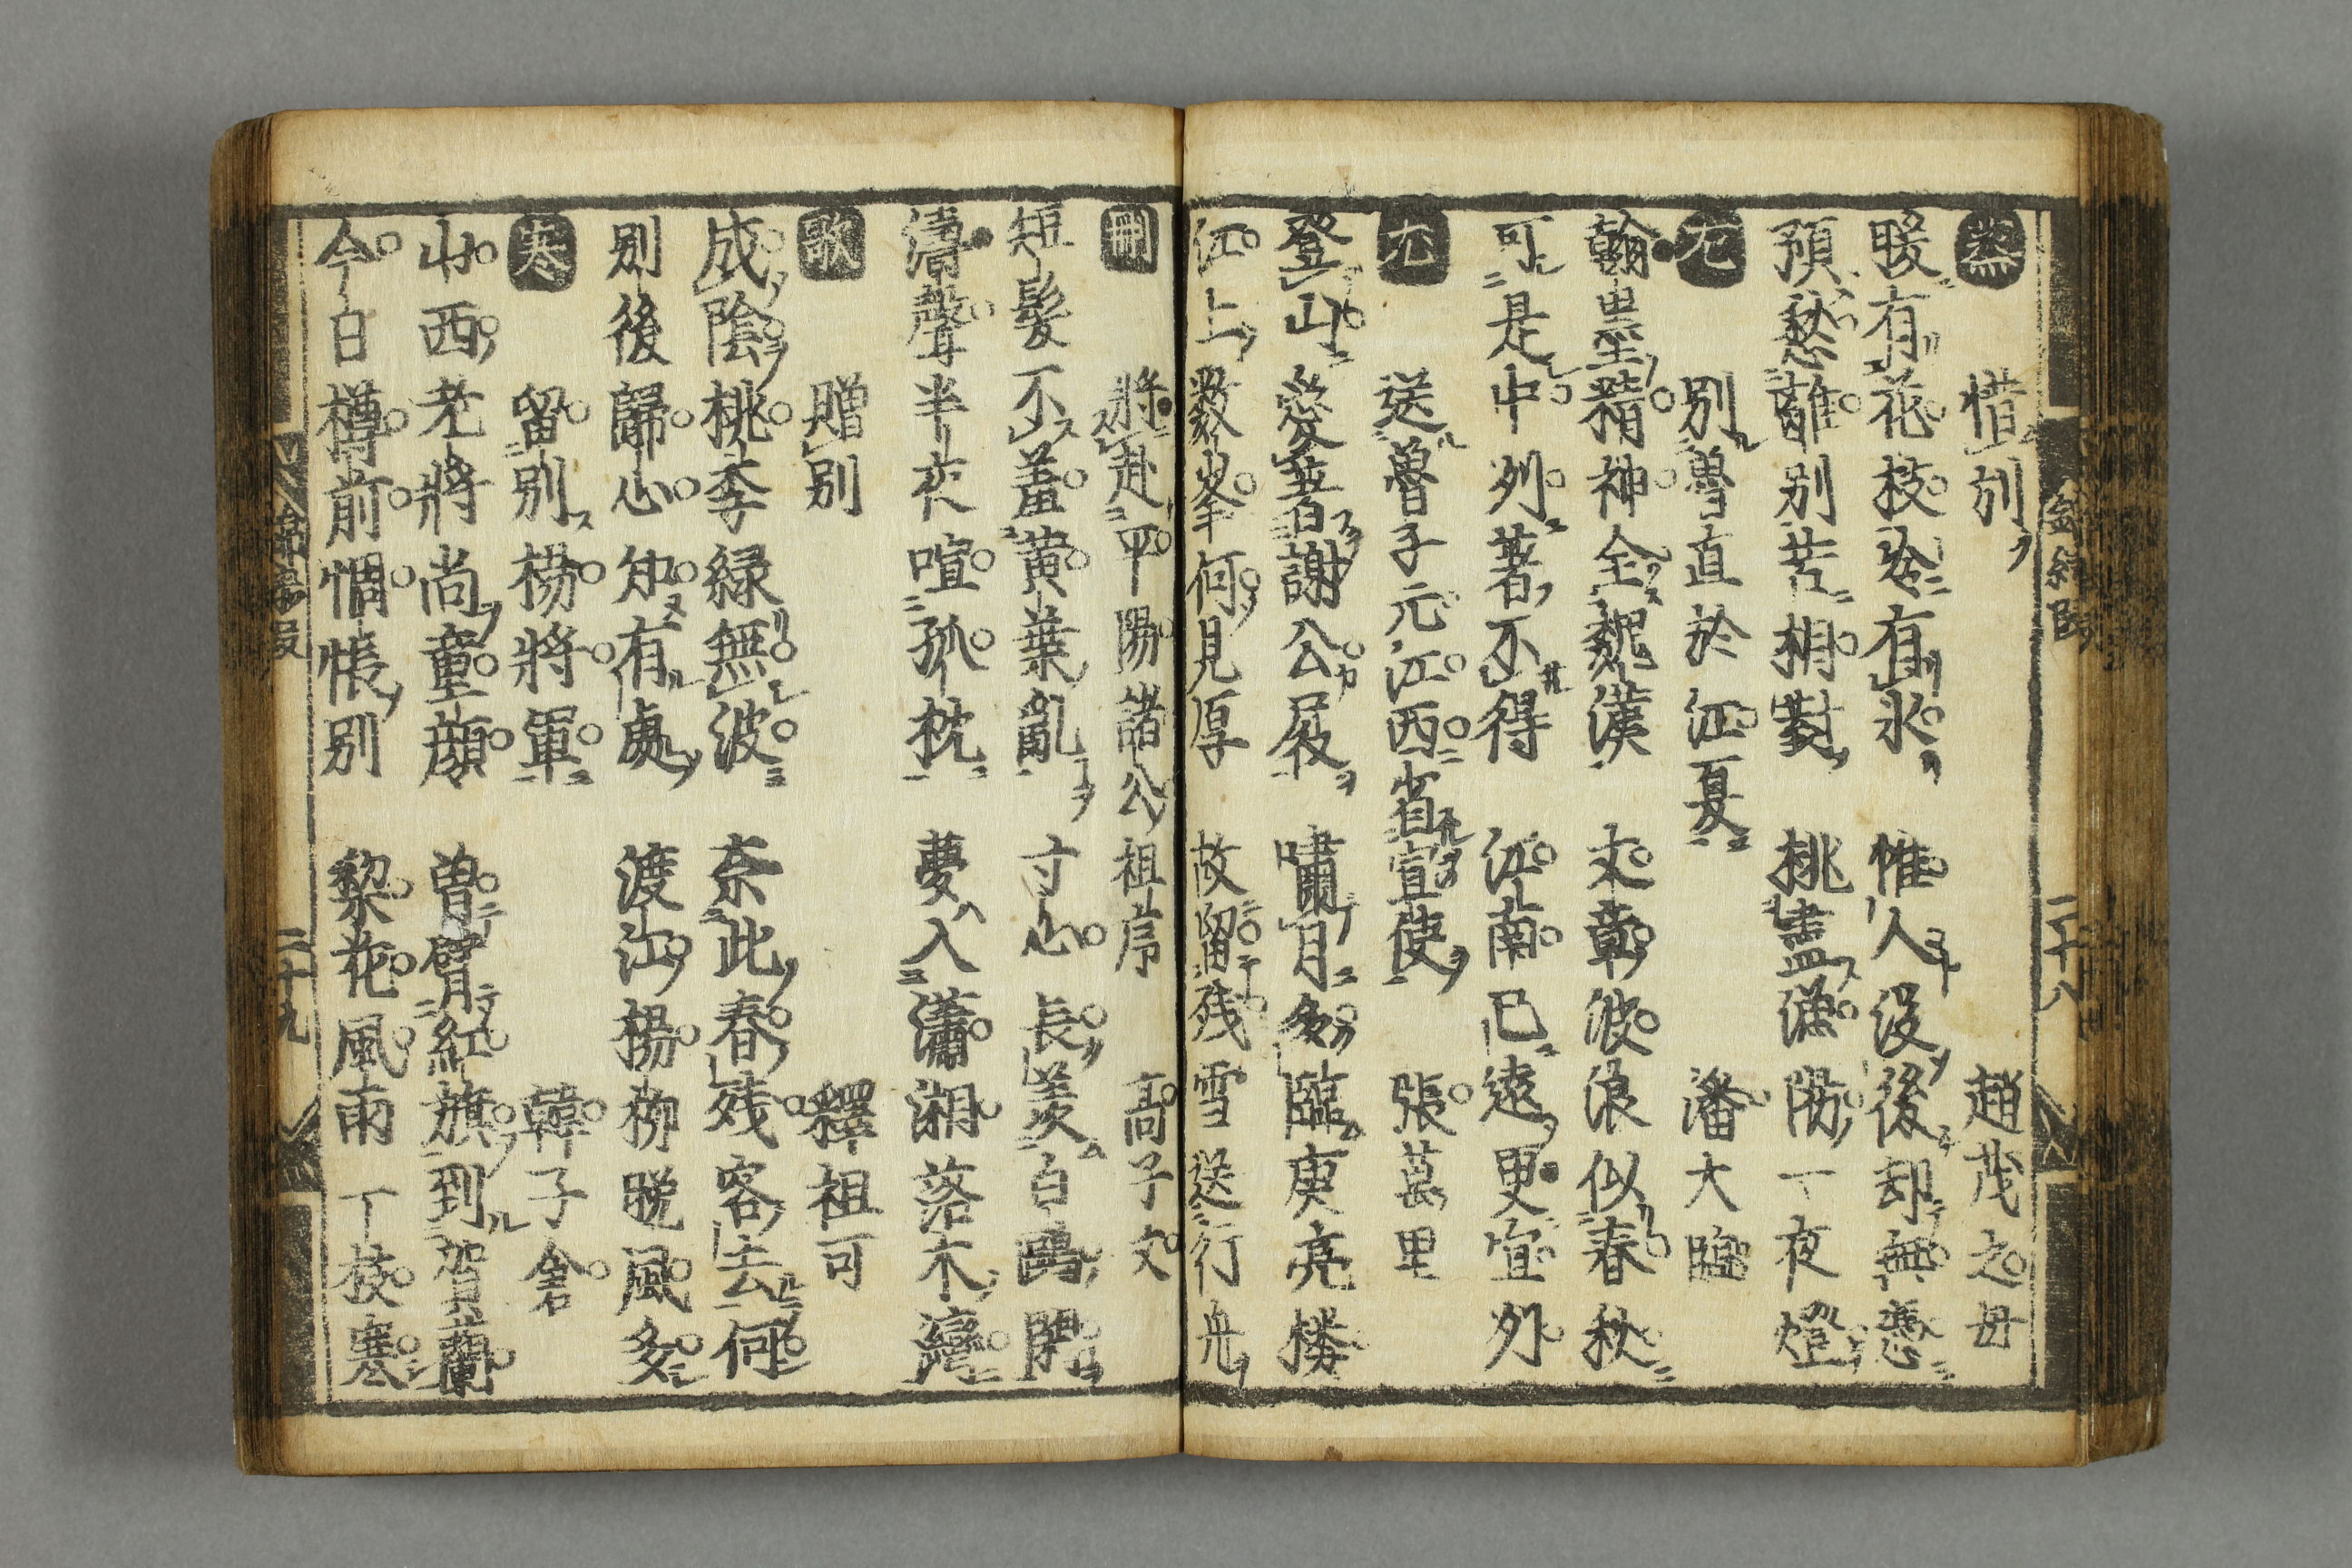 蒸 惜別 趙茂之母
暖有花枝冷有氷 惟人没後却無憑
預愁離別苦相對 挑盡漁陽一夜燈
尤 別魯直於江夏 潘大臨
翰墨精神全魏漢 文章波浪似春秋
可是中州著不得 江南已遠更宜州
尤 送魯子元江西省宣使 張萬里
登山愛著謝公屐 嘯月多臨庾亮楼
江上數峯何見厚 故留残雪送行舟
刪 將赴平陽諸公祖席 高子文
短髮不羞黄葉亂 寸心長羨白鷗閑
濤聲半夜喧孤枕 夢入瀟湘落木灣
歌 贈別 釋祖可
成陰桃李緑無波 奈此春残客去何
別後歸心知有處 渡江楊柳晩風多
寒 留別楊將軍 韓子倉
山西老將尚童顔 曽臂紅旗到賀蘭
今日樽前惆悵別 梨花風雨一枝寒
二十八
二十九